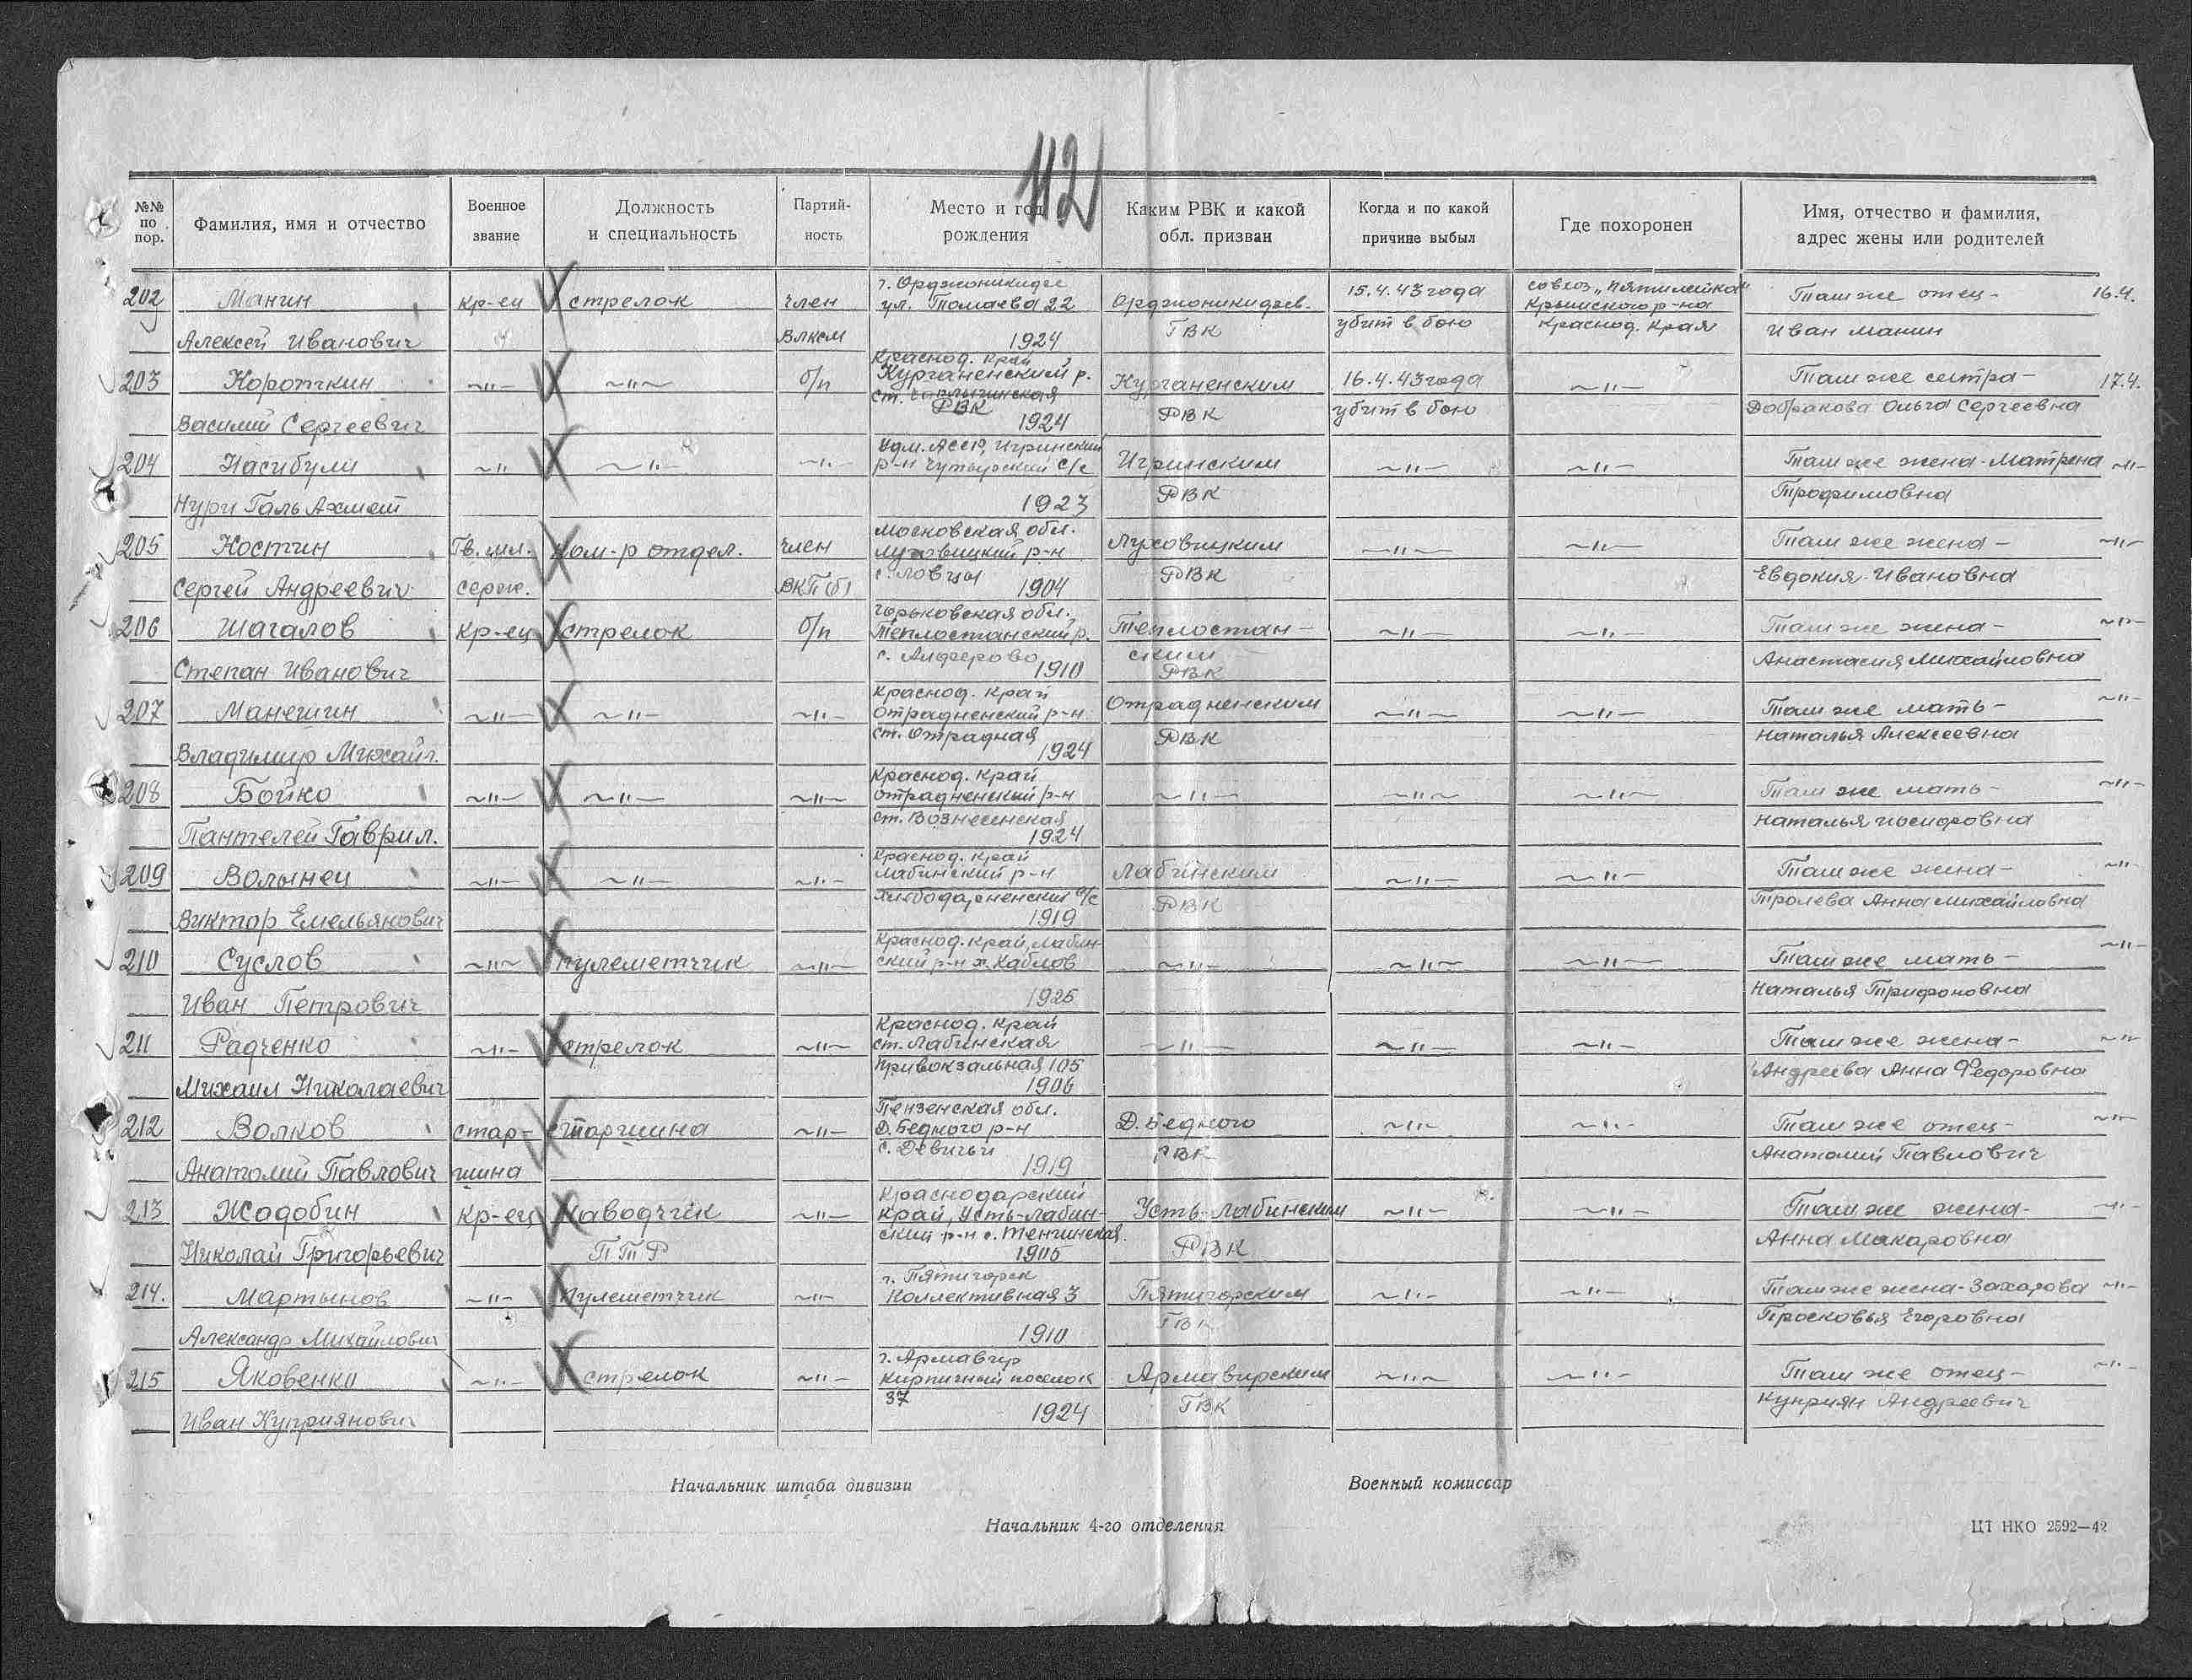 112
№№ по пор.
Фамилия, имя и отчество
Военное звание
Должность и специальность
Партийность
Место и год рождения
Каким РВК и какой обл. призван
Когда и по какой причине выбыл
Где похоронен
Имя, отчество и фамилия, адрес жены или родителей
202 Манин кр-ец стрелок член г. Орджоникидзе Орджоникидзев. 15.4.43 года совхоз „Пятилетка" Там же отец – 16.4.
ул. Томаева 22 Крымского р-на
Алексей Иванович ВЛКСМ 1924 ГВК убит в бою Краснод. края Иван Манин
203 Короткин –"– –"– б/п Краснод. край Курганенским 16.4.43 года –"– Там же сестра – 17.4.
Курганенский р.
Василий Сергеевич РВК 1924 РВК убит в бою Добракова Ольга Сергеевна
204 Насибули –"– –"– –"– Удм. АССР, Игринский Игринским –"– –"– Там же жена – Матрена –"–
р-н Чутырский с/с
Нури Галь Ахмет 1923 РВК Трофимовна
205 Костин Гв. мл. ком-р отдел. член Московская обл. Луховицким –"– –"– Там же жена – –"–
Луховицкий р-н
Сергей Андреевич серж. ВКП(б) с. Ловцы 1904 РВК Евдокия Ивановна
206 Шагалов кр-ец стрелок б/п Горьковская обл. Теплостан- –"– –"– Там же жена – –"–
Теплостанский р.
Степан Иванович с. Алферово 1910 ским РВК Анастасия Михайловна
207 Манешин –"– –"– –"– Краснод. край Отрадненским –"– –"– Там же мать – –"–
Отрадненский р-н
Владимир Михайл. ст. Отрадная 1924 РВК Наталья Алексеевна
208 Бойко –"– –"– –"– Краснод. край –"– –"– –"– Там же мать – –"–
Отрадненский р-н
Пантелей Гаврил. ст. Вознесенская 1924 Наталья Иосифовна
209 Волынец –"– –"– –"– Краснод. край Лабинским –"– –"– Там же жена – –"–
Лабинский р-н
Виктор Емельянович 1919 РВК Анна Михайловна
210 Суслов –"– пулеметчик –"– Краснод. край, Лабин- –"– –"– –"– Там же мать – –"–
ский р-н х. Каблов
Иван Петрович 1925 Наталья Трифоновна
211 Радченко –"– стрелок –"– Краснод. край –"– –"– –"– Там же жена – –"–
ст. Лабинская
Михаил Николаевич Привокзальная 105 1906 Андреева Анна Федоровна
212 Волков стар- старшина –"– Пензенская обл. Д. Бедного –"– –"– Там же отец – –"–
Д. Бедного р-н
Анатолий Павлович шина с. Девичьи 1919 РВК Анатолий Павлович
213 Жадобин кр-ец наводчик –"– Краснодарский Усть-Лабинским –"– –"– Там же жена – –"–
край, Усть-Лабин-
Николай Григорьевич ПТР ский р-н с. Тенгинская. 1905 РВК Анна Макаровна
214. Мартынов –"– пулеметчик –"– г. Пятигорск Пятигорским –"– –"– Там же жена – Захарова –"–
Коллективная 3
Александр Михайлович 1910 ГВК Просковья Егоровна
215 Яковенко –"– стрелок –"– г. Армавир Армавирским –"– –"– Там же отец – –"–
Кирпичный поселок
Иван Куприянович 37 1924 ГВК Куприян Андреевич
Начальник штаба дивизии
Военный комиссар
Начальник 4-го отделения
ЦТ НКО 2592—42